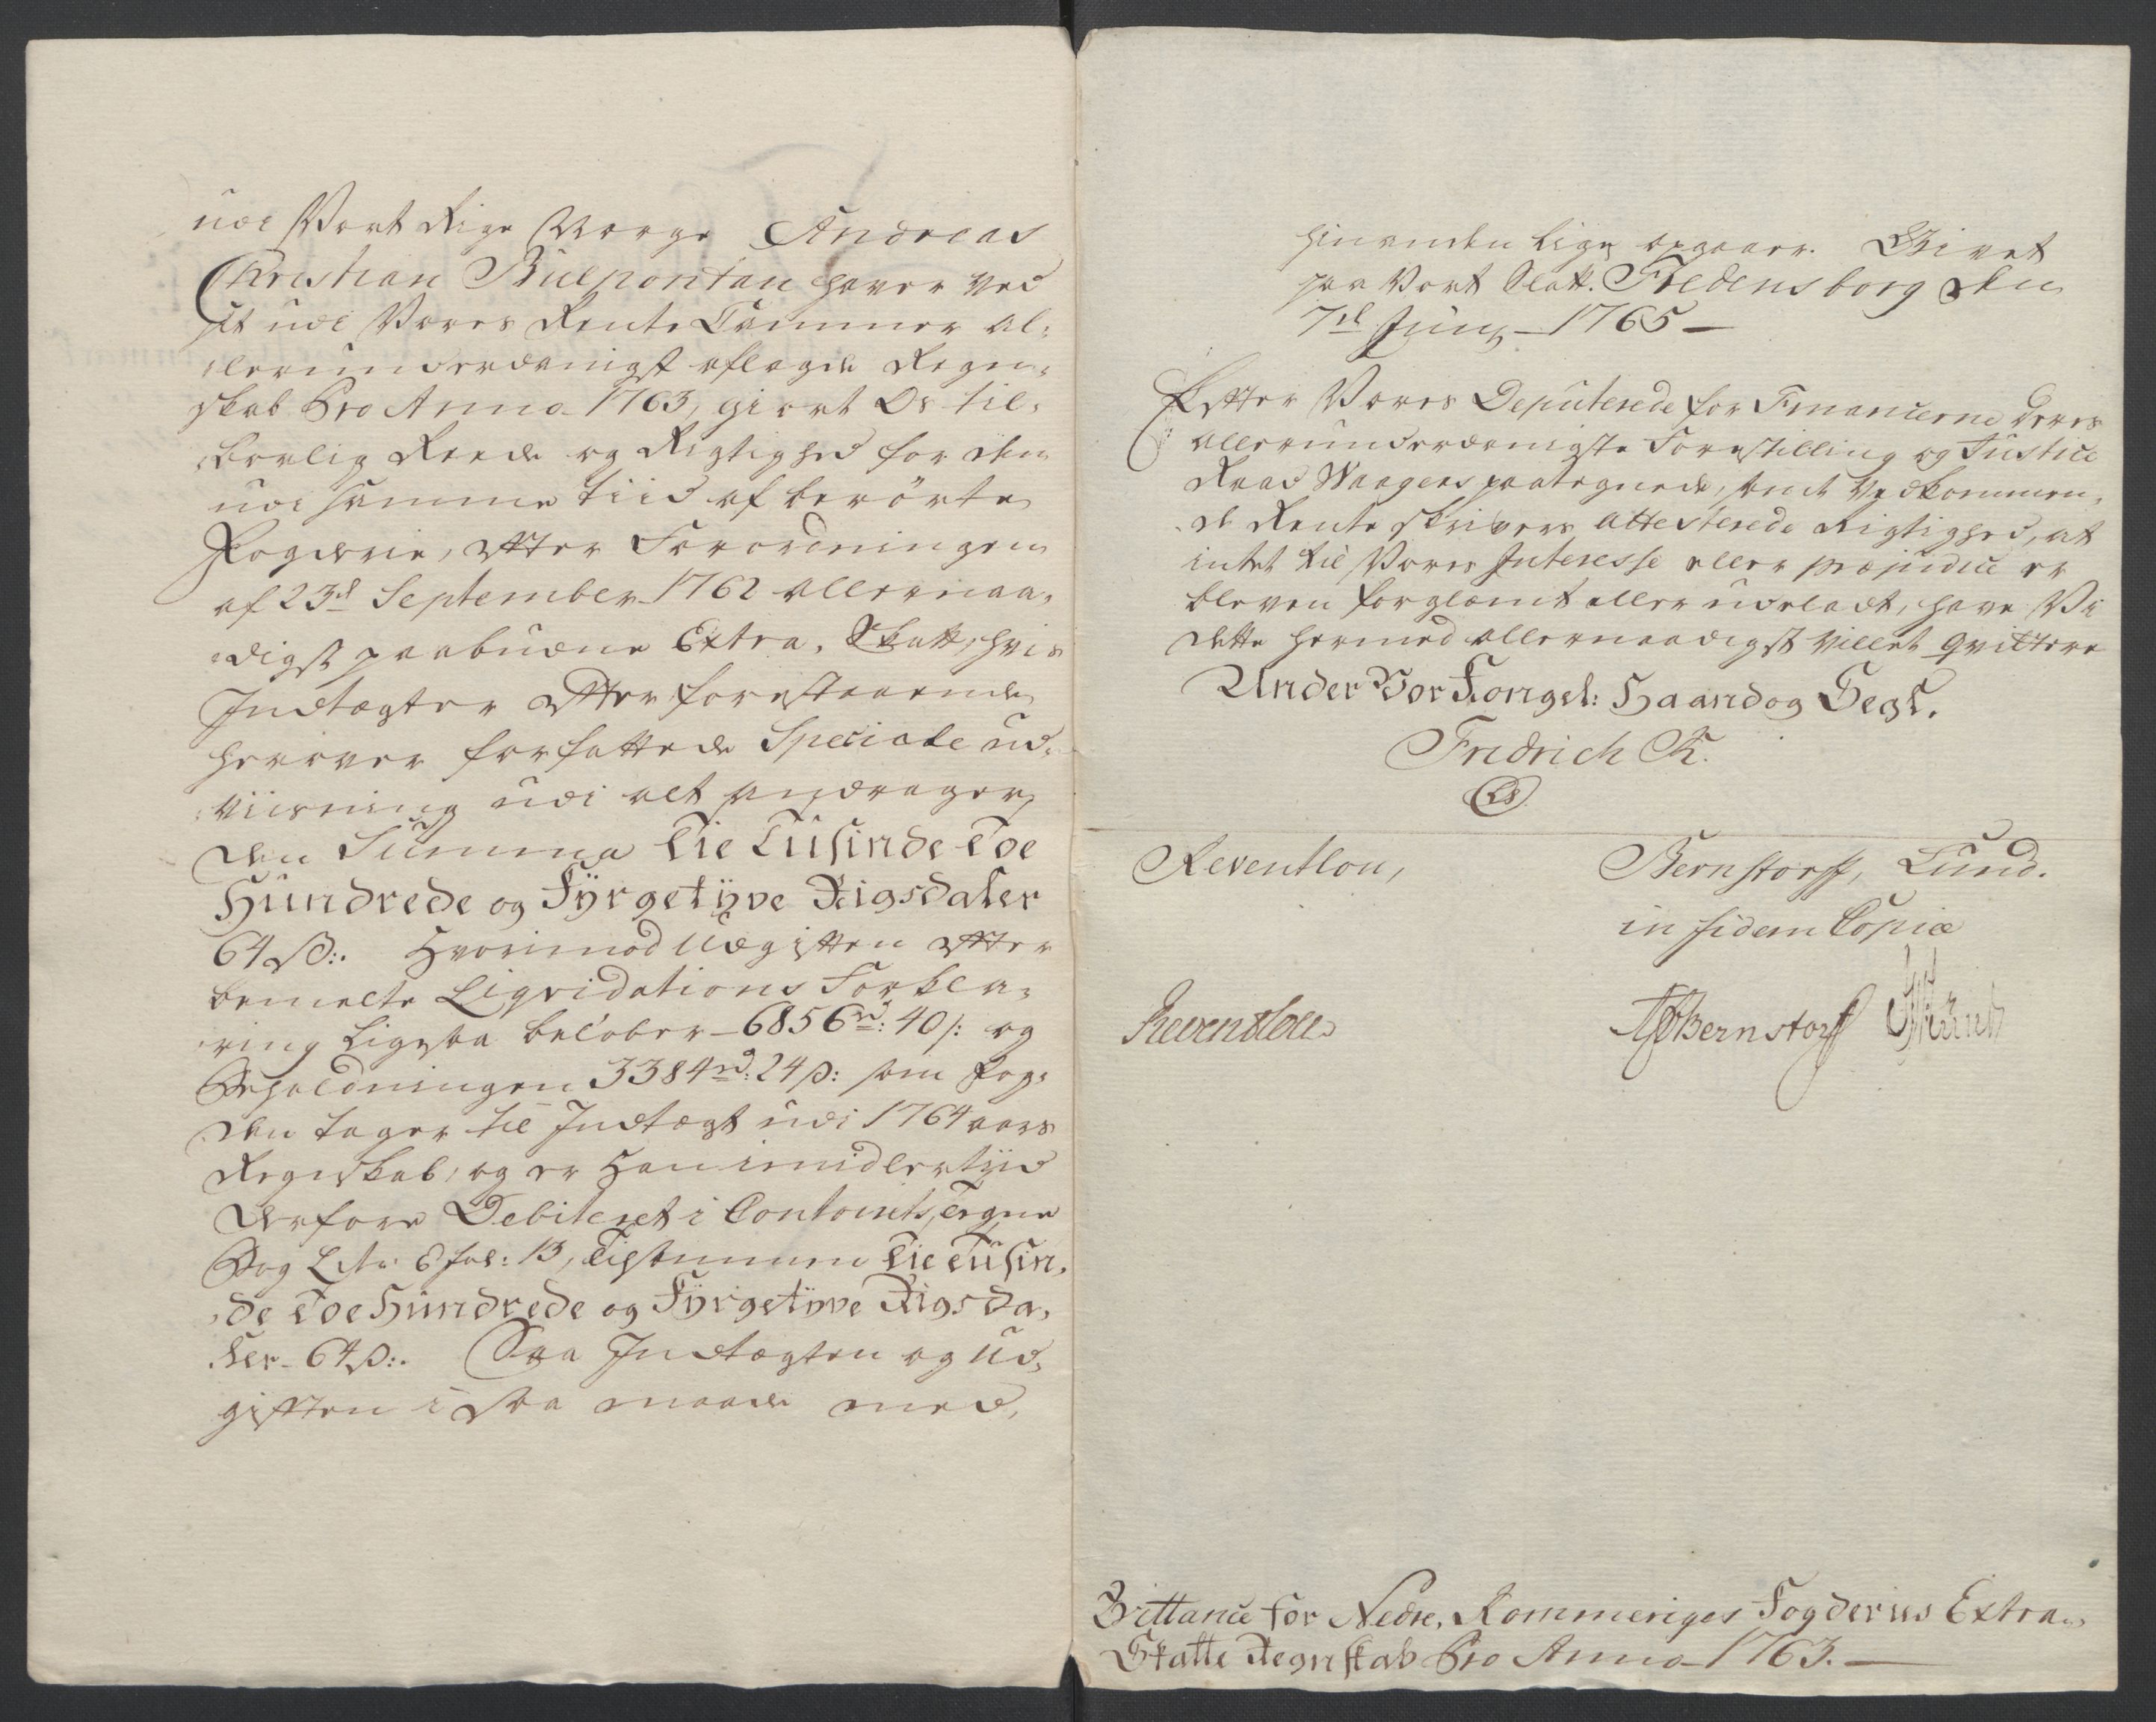 udi Vort Rige Norge Andreas
Christian Bulpontan haver ved
sit udi Vores Rente Cammer al-
lerunderdanigst aflagde Regn-
skab Pro Anno 1763, giort Os til-
börlig Reede og Rigtighed for den
udi samme tiid af berörte
Fogderie, efter Forordningen
af 23d September 1762 allernaa-
digst paabudne Extra, Skatt, hvis
Indtægter efter forestaaende
herover forfattede Speciale ud-
viisning udi alt andrager
den Summa Tie Tusinde Toe
Hundrede og Fyrgetÿve Rigsdaler
64 ß:. Hvorimod Udgiften efter
bemelte Liqvidations Forkla-
ring ligesaa belöber 6856 rd: 40 ß: og
Beholdningen 3384 rd: 24 ß: som Fog-
den tager til Indtægt udi 1764 aars
Regnskab, og er Han imidlertiid
derfore Debiteret i Contoirets, egne
Bog Litr: E fol: 13, tilsammen Tie Tusin-
de Toe Hundrede og Fyrgetÿve Rigsda-
ler 64 ß:. Saa Indtægten og Ud-
giften i saa maade med,
hinanden lige opgaaer. Givet
paa Vort Slott. Fredensborg den
7de Junÿ 1765
Efter Vores Deputerede for Financerne deres
allerunderdanigste Forestilling og Justice
Raad Waagens paategnede, samt Vedkommen-
de Renteskrivers attesterede Rigtighed, at
intet til Vores Interesse eller præjudice er
bleven forglemt eller udeladt, have Vi
dette hermed allernaadigst villet qvittere
Under Vor Kongel: Haand og Segl.
Fridrich R.
LS
Reventlou, Bernstorff, Lund.
in fidem Copiæ
Reventlou Bernstorff Lund
Qvittance for Nedre, Rommeriges Fogderies Extra
Skatte Regnskab Pro Anno 1763.